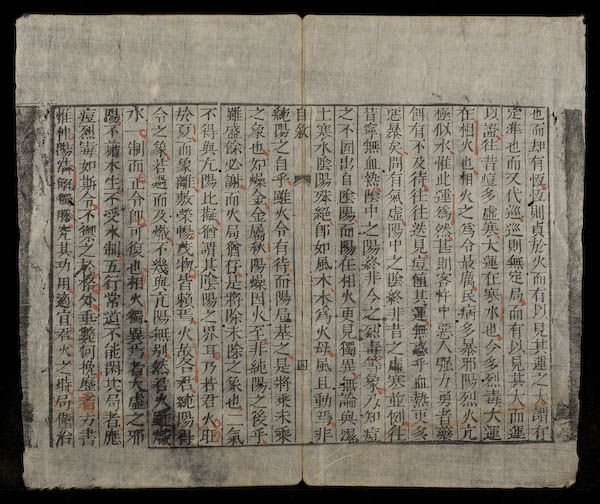 也而却有恆恆則貞於火而有以見其運之大謂有
定準也而又代巡巡則無定局而有以見其大而運
以證往昔痘多虛寒大運在寒水也今多烈毒大運
在相火也相火之為令最厲民病多暴邪陽烈火亢
極似水惟此運為然甚則客忤中惡人彊力勇者藥
餌有不及待往往迭見痘其運無惑乎血熱更多
惡暴矣間有氣虛陽中之陰終非昔之虛寒並例往
昔寧無血熱陰中之陽終非今之烈毒等象乃知痘
之不囿出自陰陽而陽在相火更見獨異無論與濕
土寒水陰陽殊絕即如風木木為火母風且動焉非
自敘 四
純陽之自乎雖火令有待而陽局基之是將乘未乘
之象也如燥金金屬秋陽燥因火至非純陽之後乎
雖盛餘必謝而火局猶存是將除未除之象也二氣
不得與亢陽比擬猶謂其陰陽之界耳乃若君火旺
於夏而象離敷榮暢茂物皆賴焉火故名君純陽待
令之象若過而及熾不幾與亢陽無別然君火雖熾
水一制而正令即可復也相火獨異焉者大虛之邪
陽不藉木生不受水制五行常道不能閑其局者應
痘烈毒如斯令不禦之於格外垂斃何挽歷者方書
惟仲陽解獨勝究其功用適宜君火之時局僅治